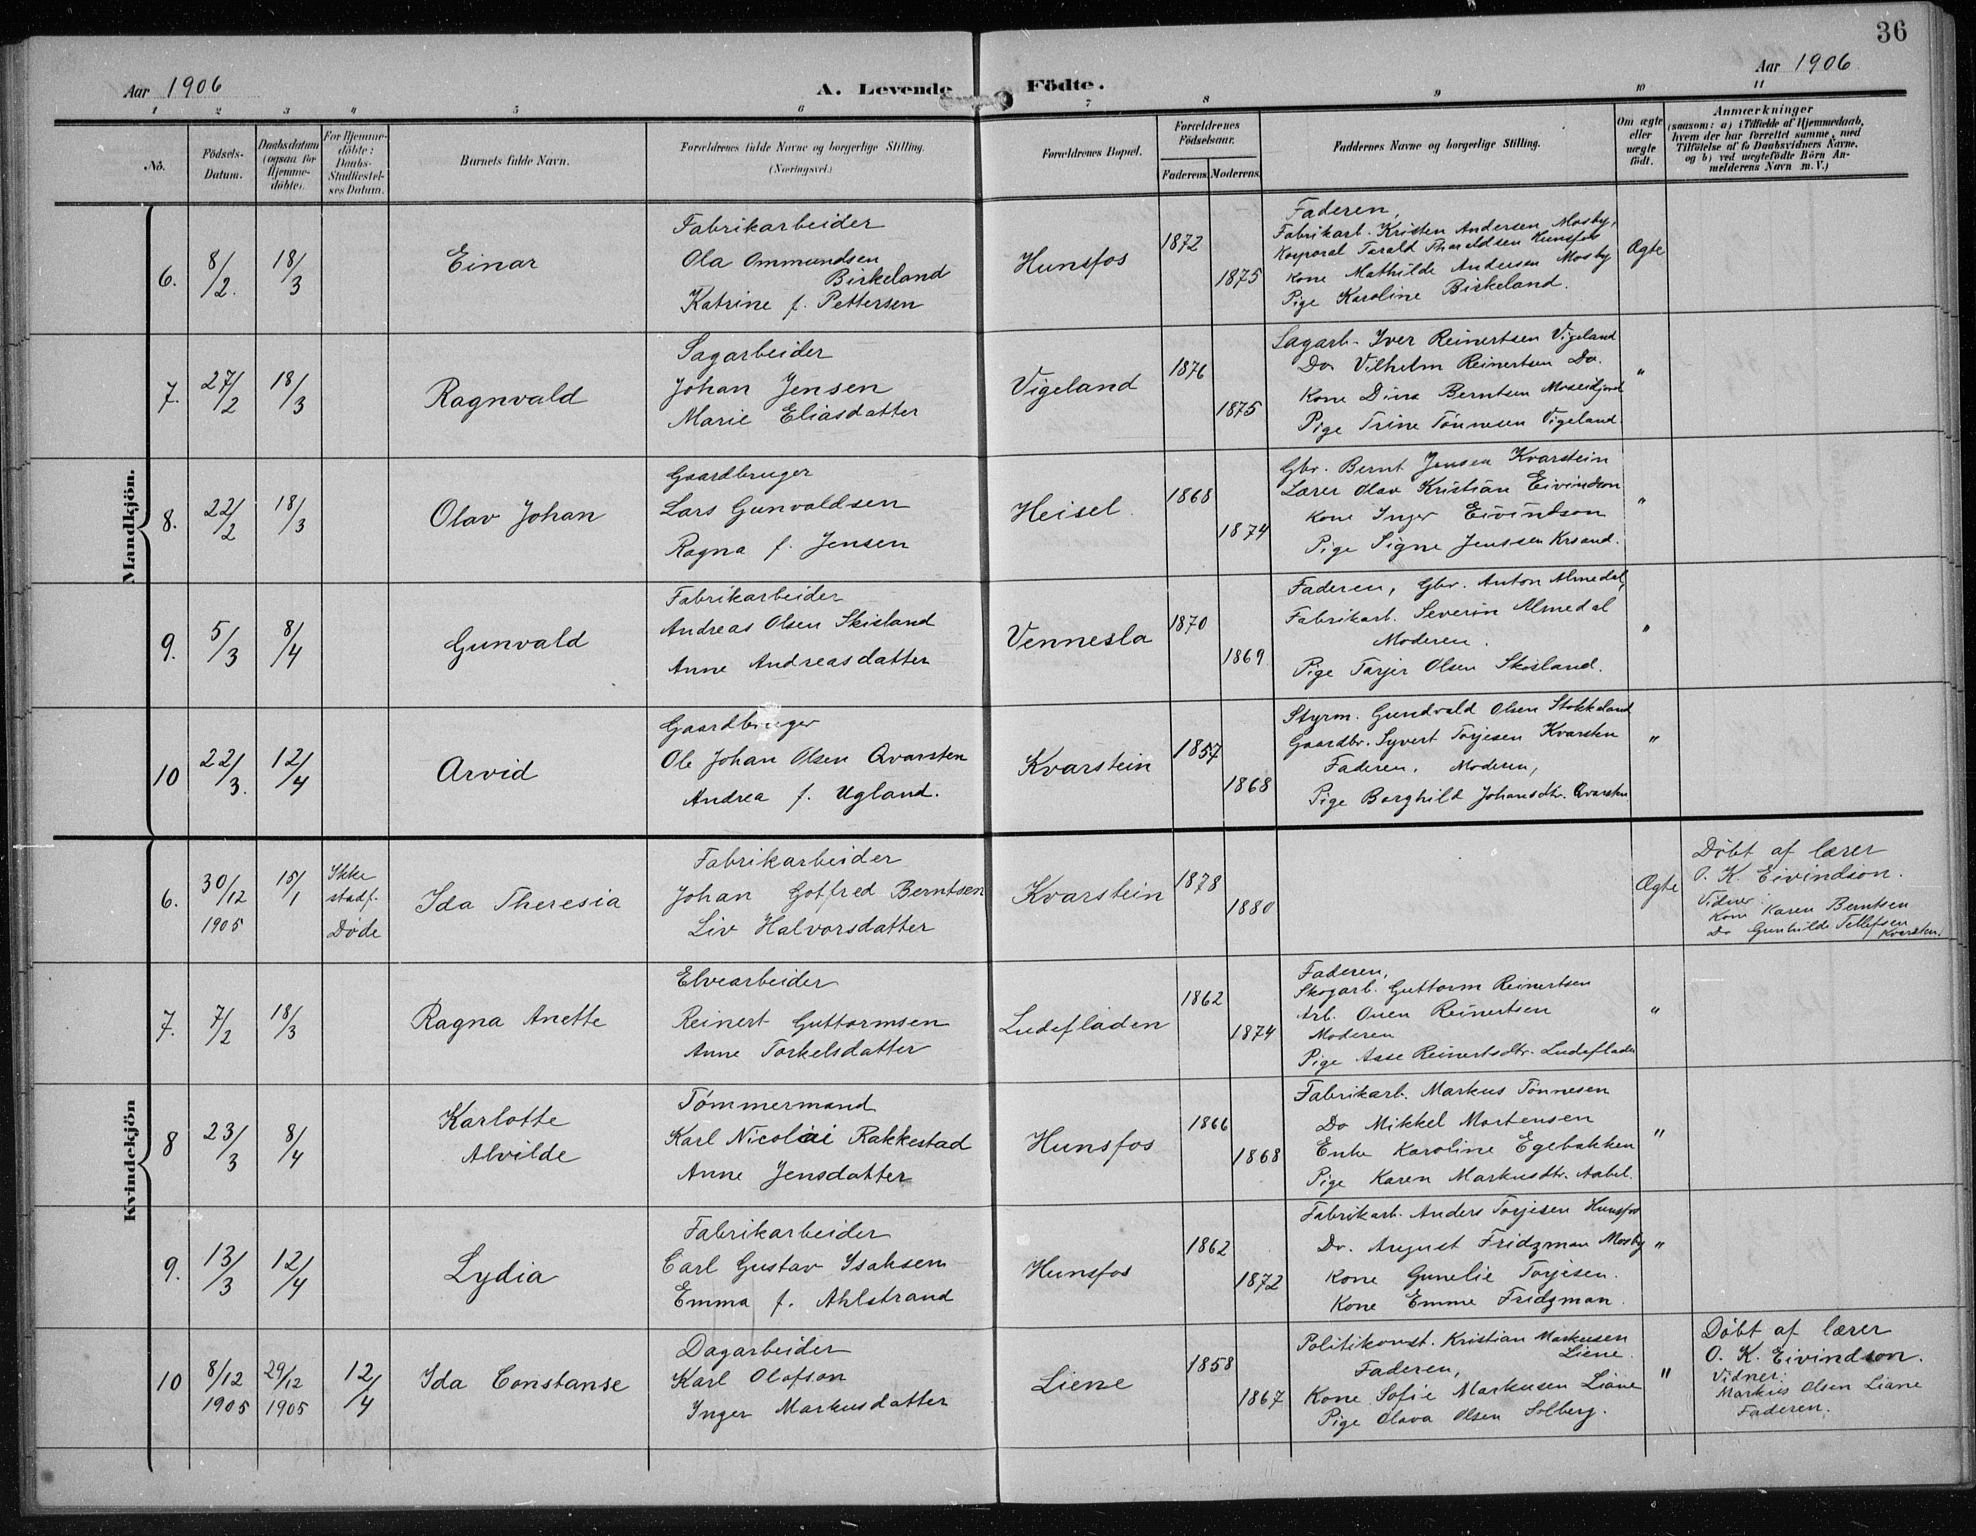 36
Aar 1906
A. Levende Födte.
Aar 1906
1 2 3 4 5 6 7 8 9 10 11
No.
Födsels-
Datum.
Daabsdatum
(ogsaa for
Hjemme-
döbte).
For Hjemme-
döbte:
Daabs-
Stadfæstel-
ses Datum.
Barnets fulde Navn.
Forældrenes fulde Navne og borgerlige Stilling.
(Næringsvei.)
Forældrenes Bopæl.
Forældrenes
Födselsaar.
Faderens. Moderens.
Faddernes Navne og borgerlige Stilling.
Om ægte
eller
uægte
födt.
Anmærkninger
(saasom: a) i Tilfælde af Hjemmedaab,
hvem der har forrettet samme, med
Tilföielse af to Daabsvidners Navne,
og b) ved uægtefödte Börn An-
melderens Navn m. V.)
Mandkjön.
6.
8/2.
18/3
Einar
Fabrikarbeider
Ola Ommundsen
Birkeland
Katrine f. Pettersen
Hunsfos
1872
1875
Faderen,
Fabrikarb. Kristen Andersen Mosby,
Korporal Tarald Tharaldsen Hunsfos
Kone Mathilde Andersen Mosby
Pige Karoline Birkeland.
Ægte
7.
27/2
18/3
Ragnvald
Sagarbeider
Johan Jensen
Marie Eliasdatter
Vigeland
1876
1875
Sagarb. Iver Reinertsen Vigeland
Do Vilhelm Reinertsen Do.
Kone Dina Berntsen Moseidjord
Pige Trine Tönnesen Vigeland.
"
8.
22/2
18/3
Olav Johan
Gaardbruger
Lars Gunvaldsen
Ragna f. Jensen
Heisel.
1868
1874
Gbr. Bernt Jensen Kvarstein
Lærer Olav Kristian Eivindson
Kone Inger Eivindson
Pige Signe Jenssen Krsand.
"
9.
5/3
8/4
Gunvald
Fabrikarbeider
Andreas Olsen Skisland
Anne Andreasdatter
Vennesla
1870
1869
Faderen, Gbr. Anton Almedal,
Fabrikarb. Severin Almedal
Moderen.
Pige Tarjer Olsen Skisland.
"
10
22/3.
12/4
Arvid
Gaardbruger
Ole Johan Olsen Qvarsten
Andrea f. Ugland.
Kvarstein
1857
1868
Styrm. Gundvald Olsen Stokkeland
Gaardbr. Syvert Torjesen Kvarsten
Faderen, Moderen,
Pige Borghild Johansdtr. Qvarsten
"
Kvindekjön
6.
30/12
1905
15/1
Ikke
stadf.
Døde
Ida Theresia
Fabrikarbeider
Johan Gotfred Berntsen
Liv Halvorsdatter
Kvarstein
1878
1880
Ægte
Døbt af lærer
O. K. Eivindson.
Vidner.
Kone Karen Berntsen
Do Gunhilde Tellefsen
Kvarsten.
7.
7/2
18/3
Ragna Anette
Elvearbeider
Reinert Guttormsen
Anne Torkelsdatter
Ludefladen
1862
1874
Faderen,
Skogarb. Guttorm Reinertsen
Arb. Ouen Reinertsen
Moderen
Pige Aase Reinertsdtr. Ludefladen
"
8
23/3
8/4
Karlotte
Alvilde
Tömmermand
Karl Nicolai Rakkestad
Anne Jensdatter
Hunsfos
1866
1868
Fabrikarb. Markus Tönnesen
Do Mikkel Mortensen
Enke Karoline Egebakken
Pige Karen Markusdtr. Aabel.
"
9.
13/3
12/4
Lydia
Fabrikarbeider
Carl Gustav Isaksen
Emma f. Ahlstrand
Hunsfos
1862
1872
Fabrikarb. Anders Torjesen Hunsfos
Do. August Fridzman Mosby
Kone Gunelie Torjesen.
Kone Emme Fridzman.
"
10
8/12
1905
29/12
1905
12/4
Ida Constanse
Dagarbeider
Karl Olofson
Inger Markusdatter
Liene
1858
1867
Politikonst. Kristian Markusen
Liene.
Faderen,
Kone Sofie Markusen Liane
Pige Olava Olsen Solberg.
"
Døbt af lærer
O. K. Eivindson.
Vidner:
Markus Olsen Liane
Faderen.